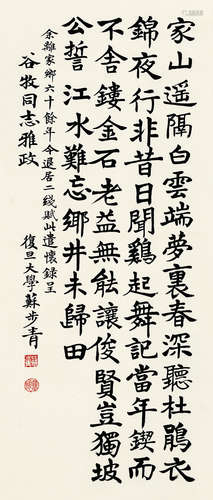 家山遥隔白雲端夢裏春深聽杜鵑衣
錦夜行非昔日聞鷄起舞記當年鍥而
不舍鏤金石老益無能讓俊賢豈獨坡
公誓江水難忘鄉井未歸田
余離家鄉六十餘年今退居二綫賦此遣懷錄呈
谷牧同志雅政
復旦大學蘇步青